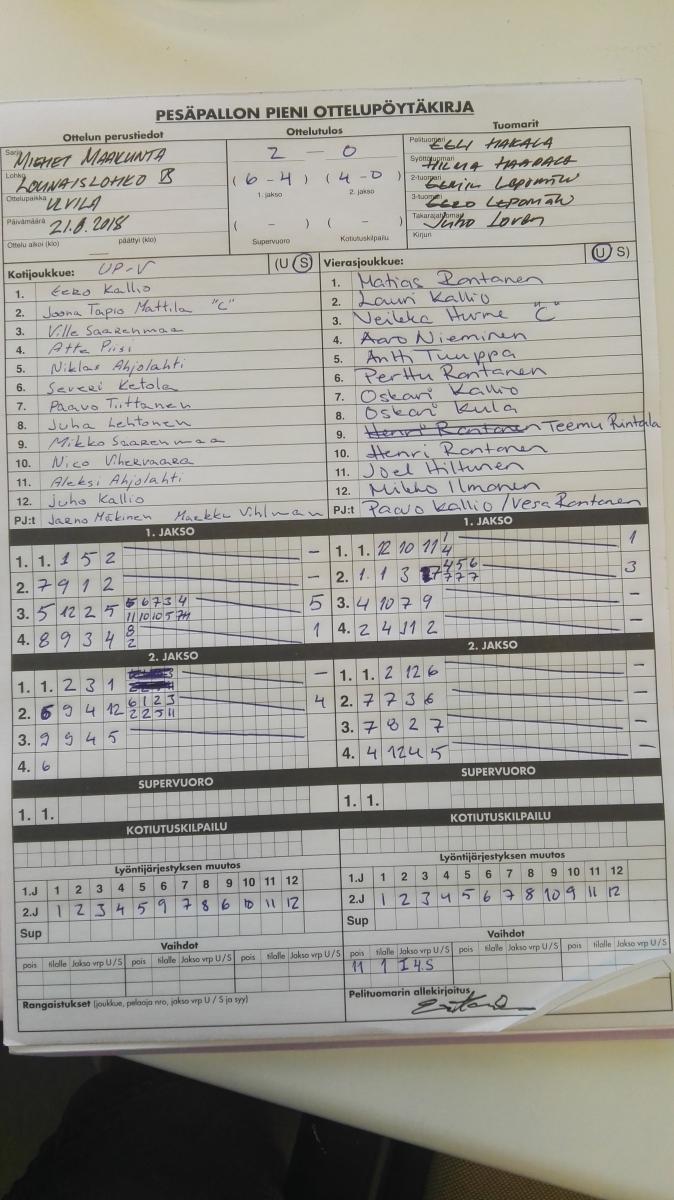 PESÄPALLON PIENI OTTELUPÖYTÄKIRJA
Ottelun perustiedot
Sarja MIEHET MAAKUNTA
Lohko LOUNAISLOHKO B
Ottelupaikka ULVILA
Päivämäärä 21.6.2018
Ottelu alkoi (klo) päättyi (klo)
Ottelutulos
2 – 0
( 6 - 4 ) ( 4 - 0 )
1. jakso 2. jakso
( - ) ( - )
Supervuoro Kotiutuskilpailu
Tuomarit
Pelituomari HAKALA
Syöttötuomari HILMA HAAPALA
2-tuomari LEPOMÄKI
3-tuomari EERO LEPOMÄKI
Takarajatuomari Juho Loven
Kirjuri
Kotijoukkue: UP-V (U S)
1. Eero Kallio
2. Joona Tapio Mattila "C"
3. Ville Saarenmaa
4. Atte Piisi
5. Niklas Ahjolahti
6. Severi Ketola
7. Paavo Tiittanen
8. Juha Lehtonen
9. Mikko Saarenmaa
10. Nico Vihervaara
11. Aleksi Ahjolahti
12. Juho Kallio
PJ:t Jarno Mäkinen Markku Vihlman
Vierasjoukkue: (U S)
1. Matias Rantanen
2. Lauri Kallio
3. Veikka Hurme "C"
4. Aaro Nieminen
5. Antti Tuuppa
6. Perttu Rantanen
7. Oskari Kallio
8. Oskari Kula
9. Henri Rantanen Teemu Rintala
10. Henri Rantanen
11. Joel Hiltunen
12. Mikko Ilmonen
PJ:t Paavo Kallio / Vesa Rantanen
1. JAKSO
1. 1. 1 5 2 –
2. 7 9 1 2 –
3. 5 12 2 5 5 6 7 3 4 5
11 10 10 5 7 11
4. 8 9 3 4 8 1
2
1. JAKSO
1. 1. 12 10 11 1 1
4
2. 1 1 3 7 4 5 6 3
7 7 7
3. 4 10 7 9 –
4. 2 4 11 2 –
2. JAKSO
1. 1. 2 3 1 –
2. 6 9 4 12 6 1 2 3 4
2 2 5 11
3. 9 9 4 5
4. 6
2. JAKSO
1. 1. 2 12 6 –
2. 7 7 3 6 –
3. 7 8 2 7 –
4. 4 12 4 5 –
SUPERVUORO
1. 1.
SUPERVUORO
1. 1.
KOTIUTUSKILPAILU
KOTIUTUSKILPAILU
Lyöntijärjestyksen muutos
1.J 1 2 3 4 5 6 7 8 9 10 11 12
2.J 1 2 3 4 5 9 7 8 6 10 11 12
Sup
Lyöntijärjestyksen muutos
1.J 1 2 3 4 5 6 7 8 9 10 11 12
2.J 1 2 3 4 5 6 7 8 10 9 11 12
Sup
Vaihdot
pois tilalle Jakso vrp U/S pois tilalle Jakso vrp U/S pois tilalle Jakso vrp U/S
Vaihdot
pois tilalle Jakso vrp U/S pois tilalle Jakso vrp U/S pois tilalle Jakso vrp U/S
11 1 I 4.S
Rangaistukset (joukkue, pelaaja nro, jakso vrp U / S ja syy)
Pelituomarin allekirjoitus